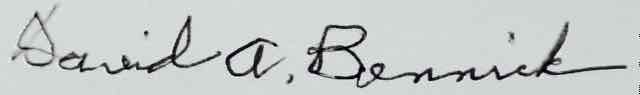 David A. Bennick